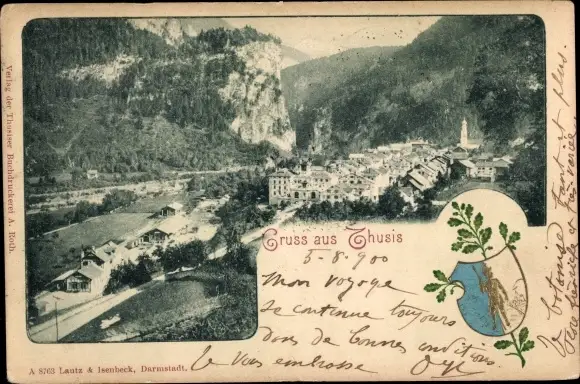 Verlag der Thusiser Buchdruckerei A. Roth.
Gruss aus Thusis
5-8-900
Mon voyage
se continue toujours
dans de bonnes conditions
Je vous embrasse
Je botanise tant et plus.
A 8763 Lautz & Isenbeck, Darmstadt.